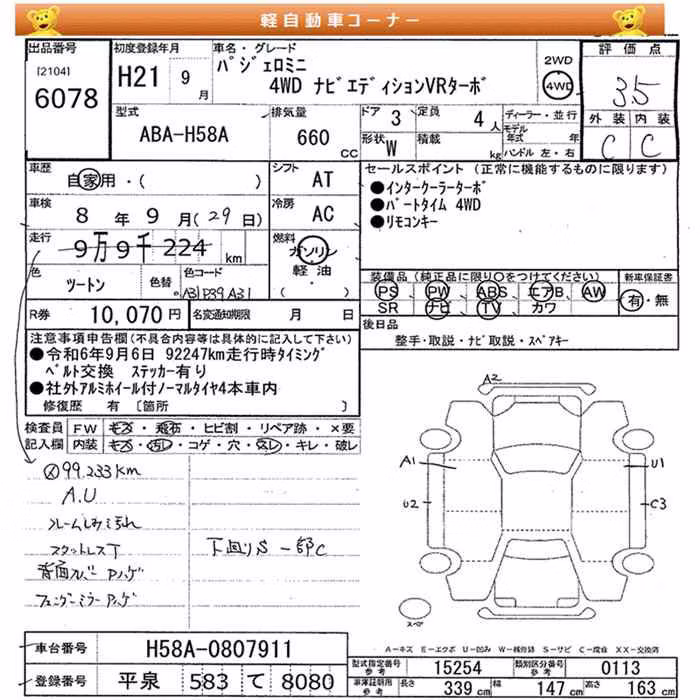 軽自動車コーナー
出品番号 初度登録年月 車名・グレード 評価点
[2104] 6078 H21 9月 パジェロミニ 2WD
4WD ナビエディションVRターボ 4WD 3.5
型式 排気量 ドア 3 定員 4人 ディーラー・並行 外装 内装
ABA-H58A 660 CC 形状 W 積載 kg モデル年式 年 C C
ハンドル 左・右
車歴 自家用・( ) シフト AT セールスポイント (正常に機能するものに限ります)
車検 8年 9月 (29日) 冷房 AC ●インタークーラーターボ
●パートタイム 4WD
●リモコンキー
走行 9万9千224 km 燃料 ガソリン
軽油・( )
色 ツートン 色替 色コード A31P39A31 装備品 (純正品に限り○をつけてください) 新車保証書
PS PW ABS エアB AW 有・無
SR ナビ TV カワ
R券 10,070円 名変通知期限 月 日 後日品
整手・取説・ナビ取説・スペアキー
注意事項申告欄(不具合内容等は具体的に記入して下さい)
●令和6年9月6日 92247km走行時タイミング
ベルト交換 ステッカー有り
●社外アルミホイール付ノーマルタイヤ4本車内
修復歴 有 [箇所 ]
検査員 FW キズ・飛石・ヒビ割・リペア跡・×要
記入欄 内装 キズ・汚レ・コゲ・穴・スレ・キレ・破レ
99,233km
A.U
フレームしみ汚れ
スカットレス下
背面カバーPハゲ
フェンダーミラーPハゲ
下廻りS 一部C
A2
A1 U1
U2 C3
スペア
A-キズ E-エクボ U-凹み W-補修跡 S-サビ C-腐食 XX-交換済
車台番号 H58A-0807911
登録番号 平泉 583 て 8080
型式指定番号 参考 15254 類別区分番号 参考 0113
車庫証明用 参考 長さ 339cm 幅 147cm 高さ 163cm